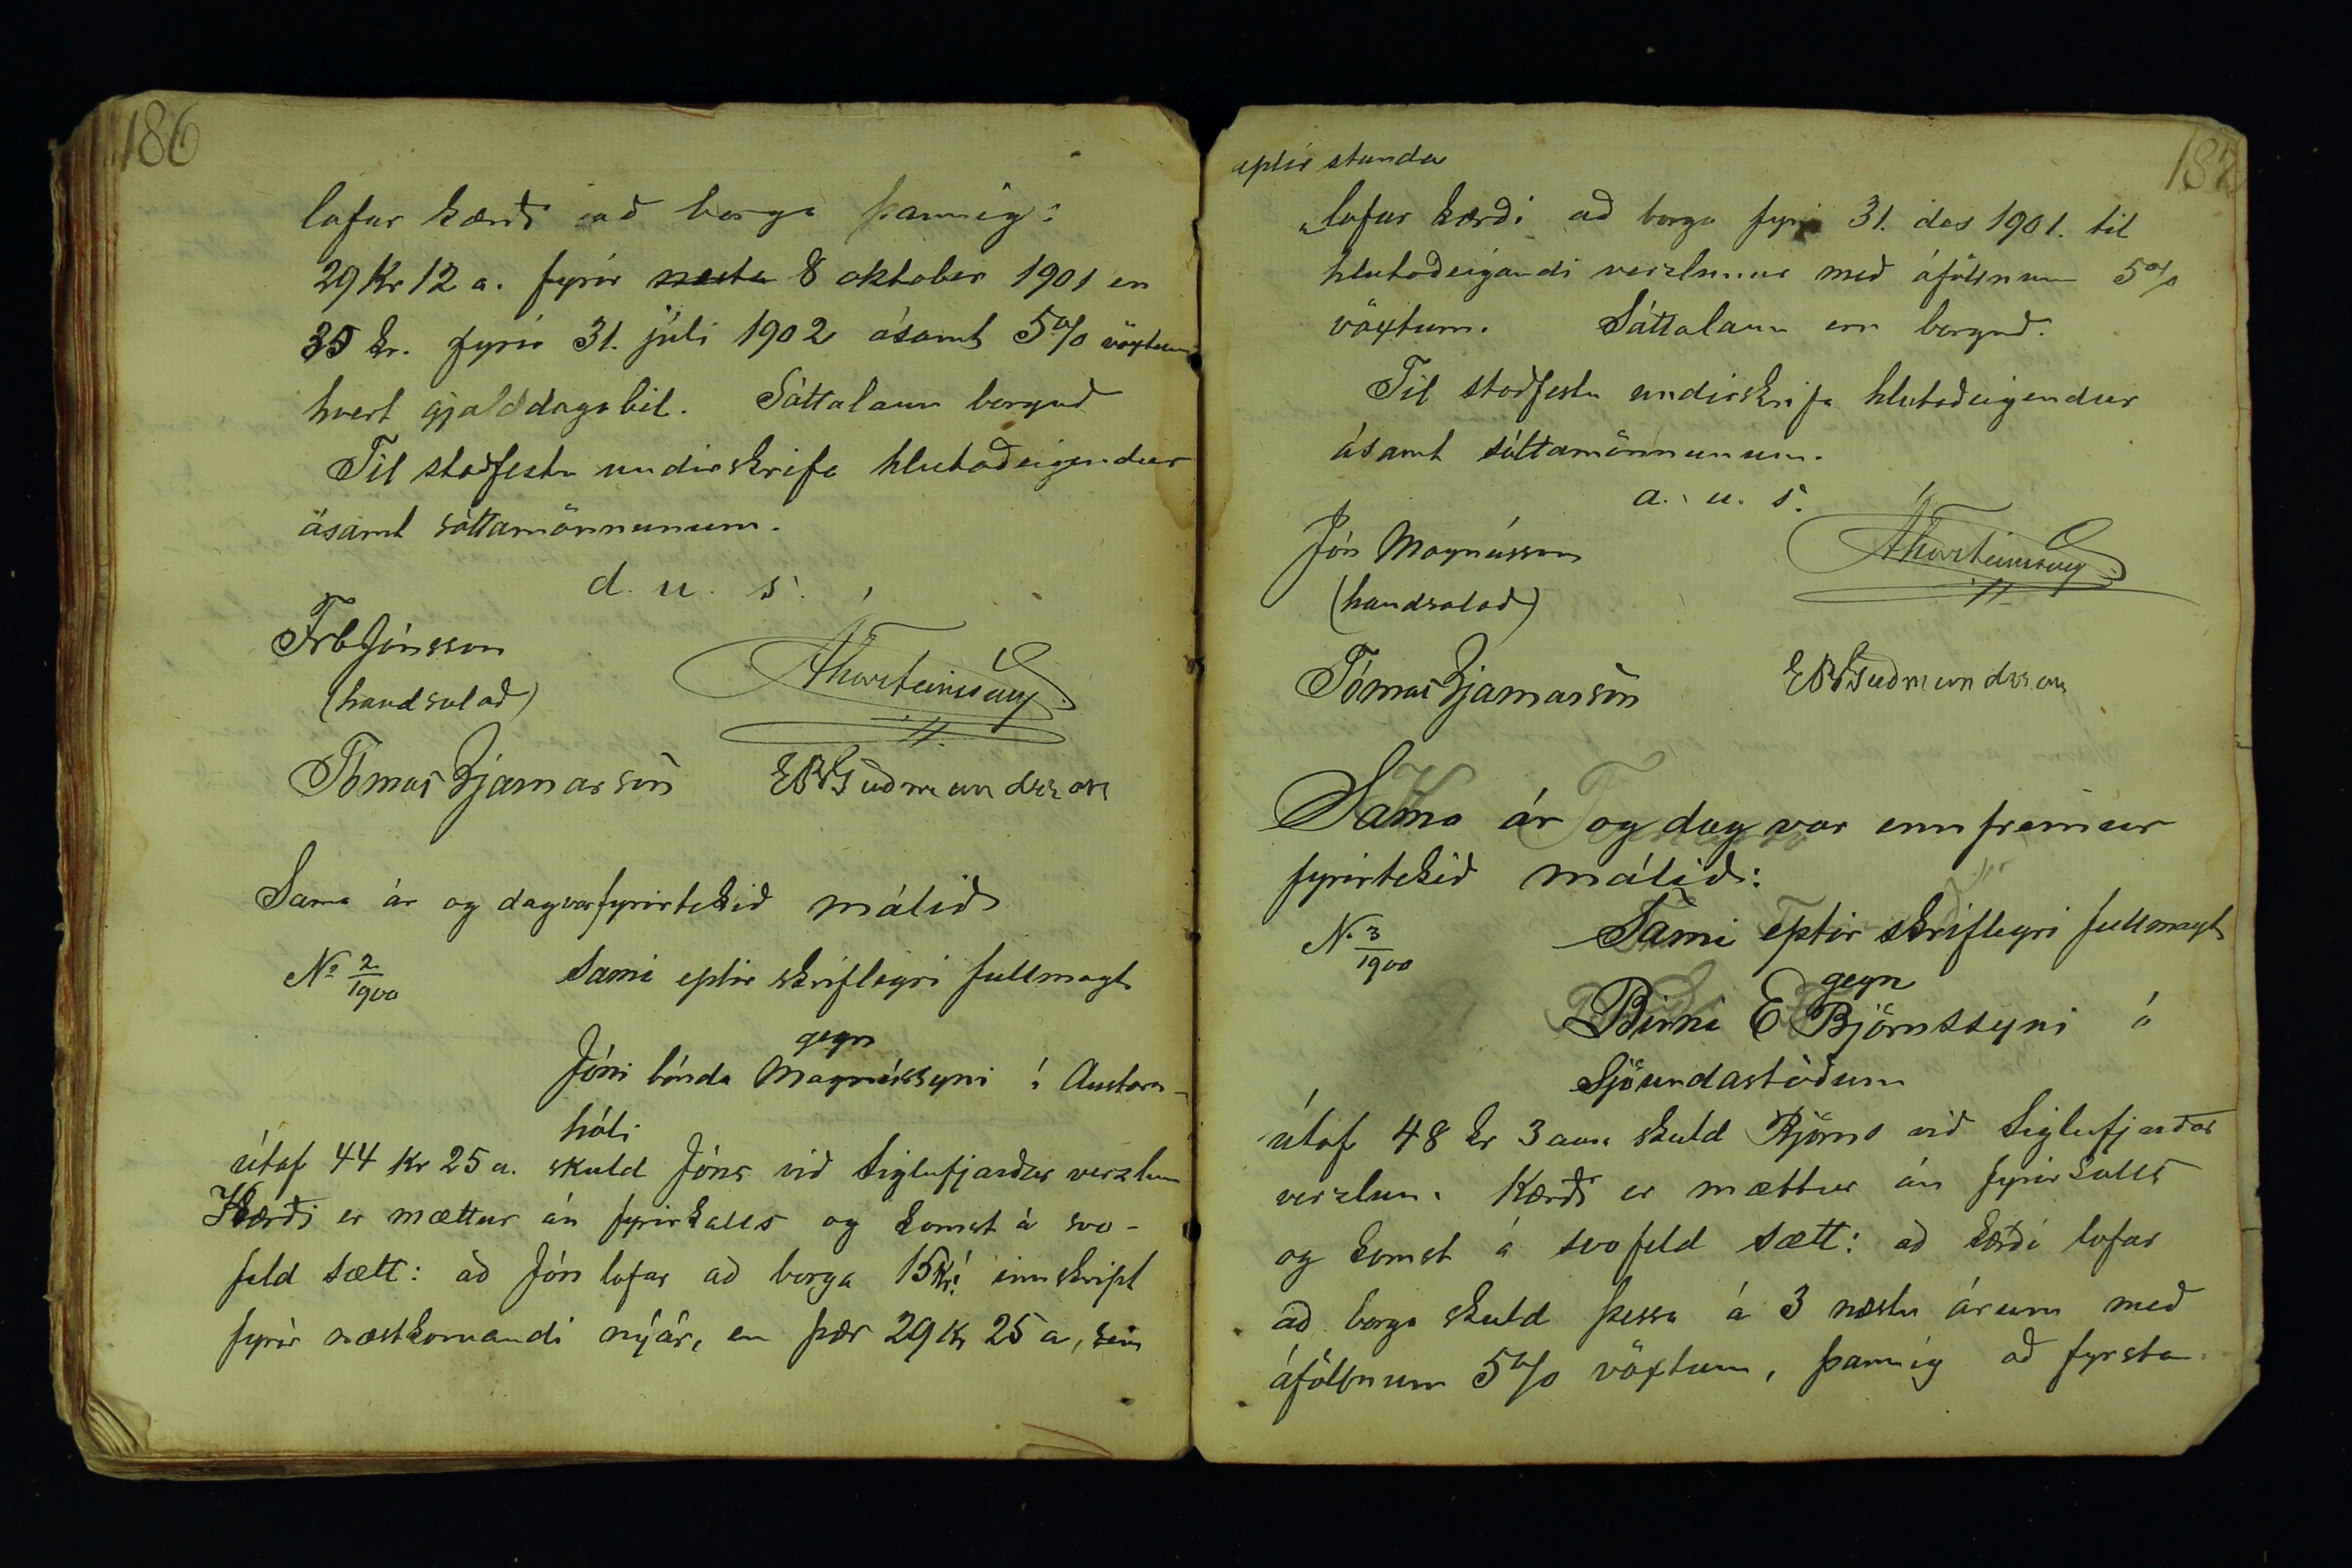 186
lofar kærði að borga þannig:
29 Kr 12 a. fyrir næsta 8 oktober 1901 en
35 kr. fyrir 31. júli 1902 ásamt 5% vöxtum
hvert gjalddagabil. Sáttalaun borguð
Til staðfestu undirskrifa hlutaðeigendur
ásamt sáttamönnunum.
d. u. s.
Frb Jónsson
(handsalað)
AThorsteinsson
Tómas Bjarnarson
EBGuðmundsson
Sama ár og dag var fyrirtekið málið
No 2/1900
Sami eptir skriflegri fullmagt
gegn
Jóni bónda Magnússyni í Austara-
hóli
útaf 44 Kr 25 a. skuld Jóns við Siglufjarðar verzlun
Kærði er mættur án fyrirkalls og komst á svo-
feld sætt: að Jón lofar að borga 15 Kr. í innskript
fyrir næstkomandi nýár, en þær 29 Kr 25 a, sem
187
eptir standa
lofar kærði að borga fyrir 31. des 1901. til
hlutaðeigandi verzlunar með áföllnum 5%
vöxtum. Sáttalaun eru borguð.
Til staðfestu undirskrifa hlutaðeigendur
ásamt sáttamönnunum.
a. u. s.
Jón Magnússon
(handsalað)
AThorsteinsson
Tómas Bjarnarson
EBGuðmundsson
Sama ár og dag var ennfremur
fyrirtekið málið:
N. 3/1900
Sami eptir skriflegri fullmagt
gegn
Birni E Björnssyni á
Sjöundastöðum
útaf 48 kr 3 aura skuld Björns við Siglufjarðar
verzlun. Kærði er mættur án fyrirkalls
og komst á svofeld sætt: að kærði lofar
að borga skuld þessa á 3 næstu árum með
áföllnum 5% vöxtum, þannig að fyrsta